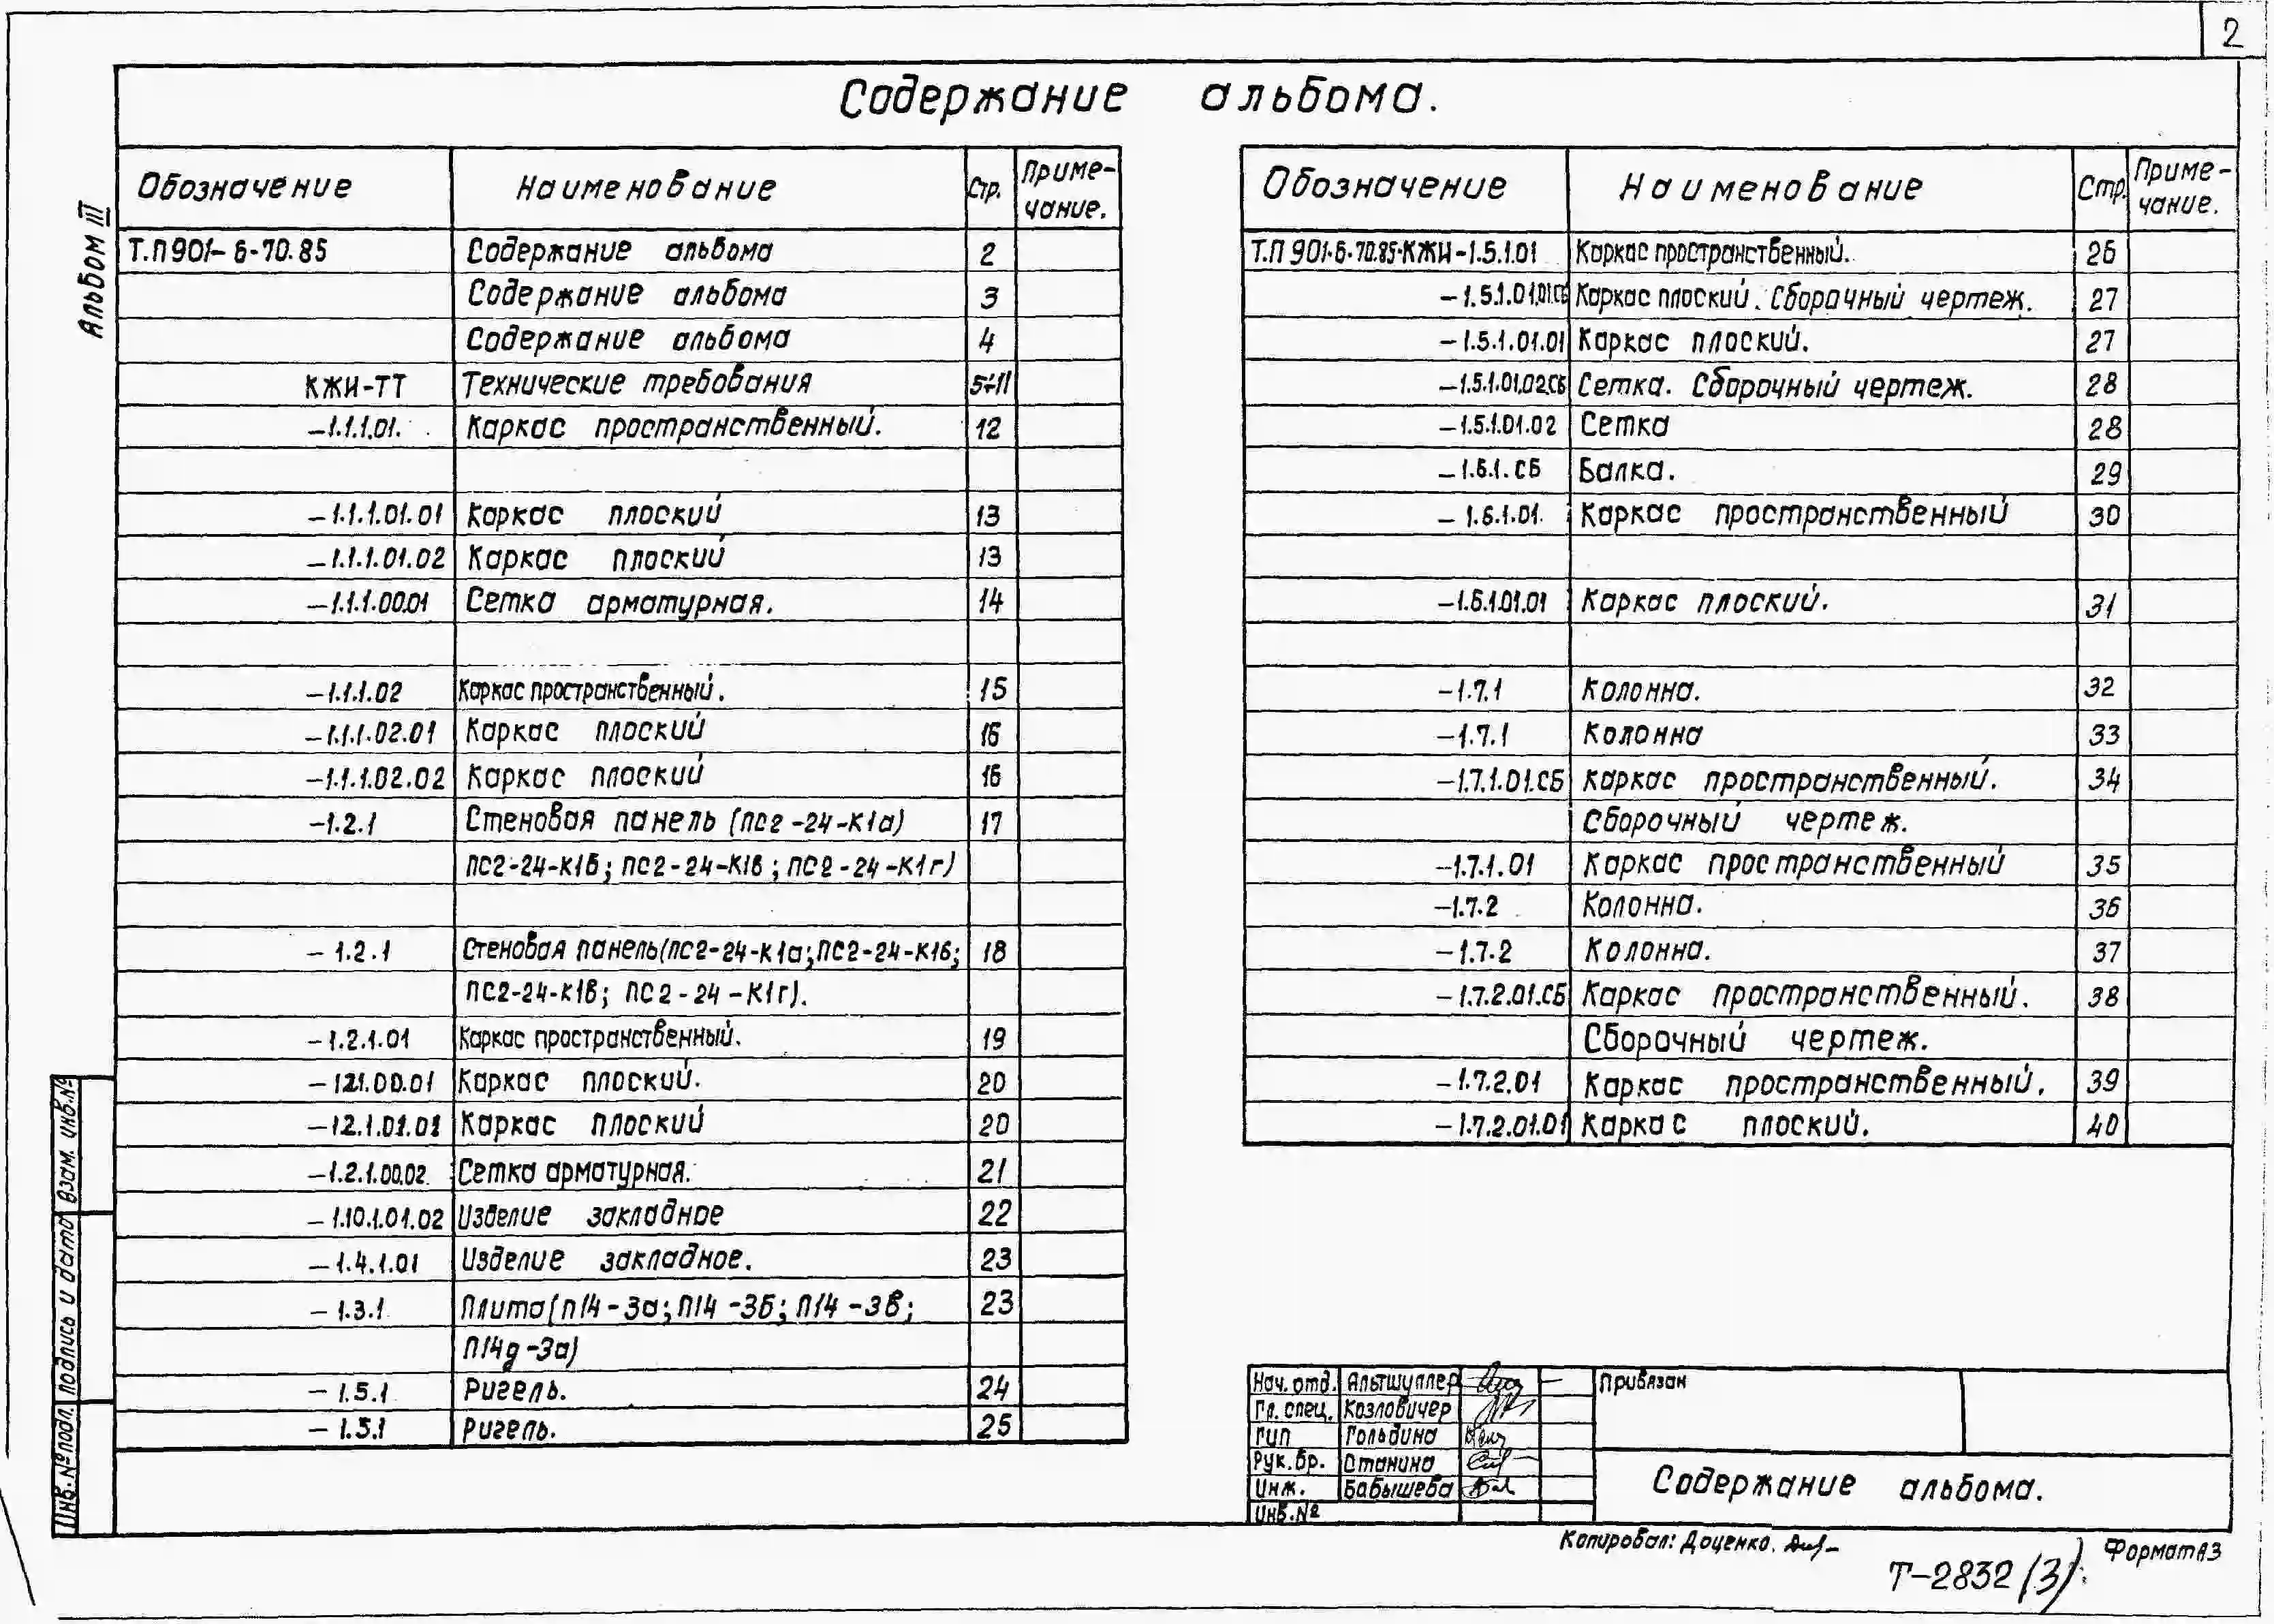 2
Содержание альбома.
Альбом III
Обозначение Наименование Стр. Приме-
чание.
Т.П 901-6-70.85 Содержание альбома 2
Содержание альбома 3
Содержание альбома 4
КЖИ-ТТ Технические требования 5÷11
-1.1.1.01. Каркас пространственный. 12
-1.1.1.01.01 Каркас плоский 13
-1.1.1.01.02 Каркас плоский 13
-1.1.1.00.01 Сетка арматурная. 14
-1.1.1.02 Каркас пространственный. 15
-1.1.1.02.01 Каркас плоский 16
-1.1.1.02.02 Каркас плоский 16
-1.2.1 Стеновая панель (ПС2-24-К1а) 17
ПС2-24-К1б; ПС2-24-К1в; ПС2-24-К1г)
-1.2.1 Стеновая панель (ПС2-24-К1а; ПС2-24-К1б; 18
ПС2-24-К1в; ПС2-24-К1г).
-1.2.1.01 Каркас пространственный. 19
-1.2.1.00.01 Каркас плоский. 20
-1.2.1.01.01 Каркас плоский 20
-1.2.1.00.02. Сетка арматурная. 21
-1.10.1.01.02 Изделие закладное 22
-1.4.1.01 Изделие закладное. 23
-1.3.1 Плита (П14-3а; П14-3б; П14-3в; 23
П14д-3а)
-1.5.1 Ригель. 24
-1.5.1 Ригель. 25
Обозначение Наименование Стр. Приме-
чание.
Т.П 901-6-70.85-КЖИ-1.5.1.01 Каркас пространственный. 26
-1.5.1.01.01.СБ Каркас плоский. Сборочный чертеж. 27
-1.5.1.01.01 Каркас плоский. 27
-1.5.1.01.02.СБ Сетка. Сборочный чертеж. 28
-1.5.1.01.02 Сетка 28
-1.6.1.СБ Балка. 29
-1.6.1.01. Каркас пространственный 30
-1.6.1.01.01 Каркас плоский. 31
-1.7.1 Колонна. 32
-1.7.1 Колонна 33
-1.7.1.01.СБ Каркас пространственный. 34
Сборочный чертеж.
-1.7.1.01 Каркас пространственный 35
-1.7.2 Колонна. 36
-1.7.2 Колонна. 37
-1.7.2.01.СБ Каркас пространственный. 38
Сборочный чертеж.
-1.7.2.01 Каркас пространственный. 39
-1.7.2.01.01 Каркас плоский. 40
Взам. инв.№
Подпись и дата
Инв.№ подл.
Нач. отд. Альтшуллер
Гл. спец. Козловичер
ГИП Гольдина
Рук. бр. Станина
Инж. Бабышева
Инв.№
Привязан
Содержание альбома.
Копировал: Доценко.
Формат А3
Т-2832 (3)